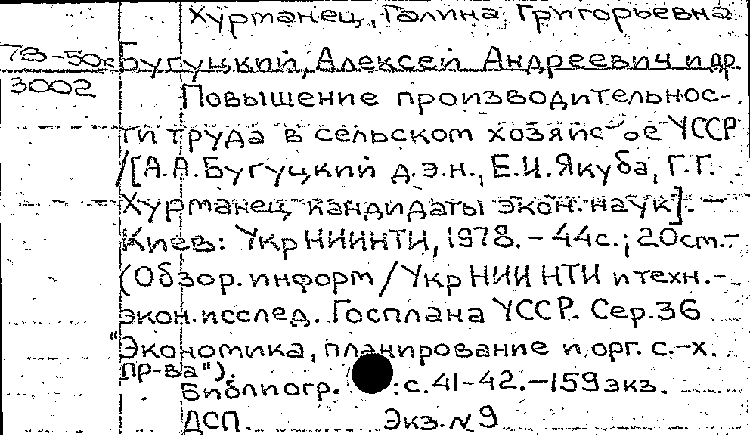 Хурманец, Галина Григорьевна
78-50с Бугуцкий, Алексей Андреевич и др
3002 Повышение производительнос-
ти труда в сельском хозяйс ое УССР
/[А.А.Бугуцкий д.э.н., Е.И.Якуба, Г.Г.
Хурманец кандидаты экон. наук]. –
Киев: УкрНИИНТИ, 1978. – 44с.; 20см.–
(Обзор. информ/УкрНИИНТИ и техн.-
экон. исслед. Госплана УССР. Сер. 36
"Экономика, планирование и орг. с.-х.
пр-ва").
Библиогр. :с.41-42.–159экз.
ДСП. Экз.№9